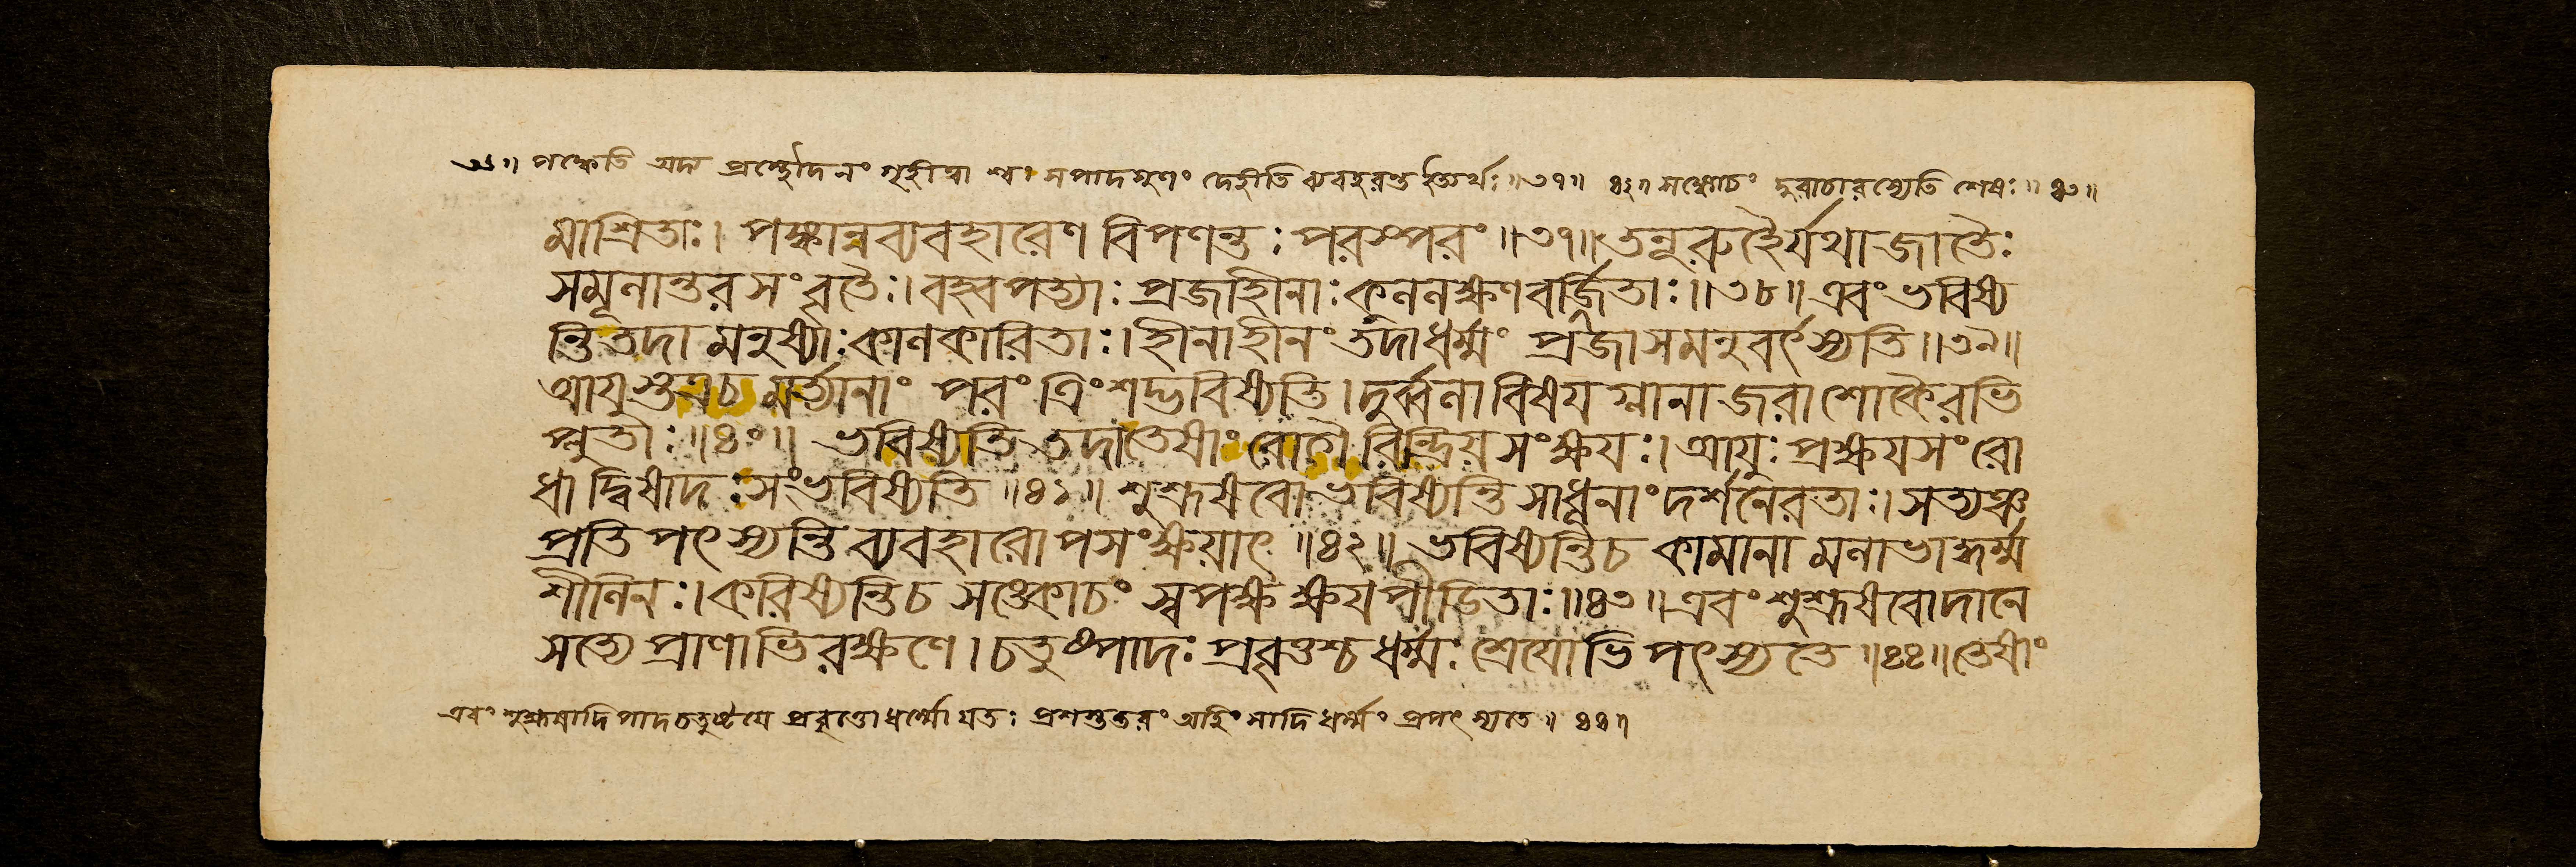 ৩৬॥ পক্কেতি অদ্য প্রস্থোদনং গৃহীত্বা শ্বঃ সপাদগুণং দেহীতি ব্যবহরন্ত ইত্যর্থঃ॥৩৭॥ ৪২॥ সঙ্কোচং দুরাচারস্যেতি শেষঃ॥৪৩॥
মাশ্রিতাঃ। পক্কান্নব্যবহারেণ বিপণন্তঃ পরস্পরং॥৩৭॥ তনূরুহৈর্যথাজাতৈঃ
সমূলান্তরসংবৃতৈঃ। বহ্বপত্যাঃ প্রজাহীনাঃ কুললক্ষণবর্জিতাঃ॥৩৮॥ এবং ভবিষ্য
ন্তি তদা মনুষ্যাঃ কালকারিতাঃ। হীনাহীনং তদা ধর্ম্মং প্রজা সমনুবর্ৎস্যতি॥৩৯॥
আয়ুস্তত্রচ মর্ত্যানাং পরং ত্রিংশদ্ভবিষ্যতি। দুর্ব্বলা বিষয়গ্লানা জরাশোকৈরভি
প্লুতাঃ॥৪০॥ ভবিষ্যতি তদা তেষাং রোগৈরিন্দ্রিয়সংক্ষয়ঃ। আয়ুঃপ্রক্ষয়সংরো
ধাদ্বিষাদঃ সংভবিষ্যতি॥৪১॥ শুশ্রূষবো ভবিষ্যন্তি সাধূনাং দর্শনেরতাঃ। সত্যঞ্চ
প্রতিপৎস্যন্তি ব্যবহারোপসংক্ষয়াৎ॥৪২॥ ভবিষ্যন্তিচ কামানামলাভাদ্ধর্ম্ম
শীলিনঃ। করিষ্যন্তিচ সঙ্কোচং স্বপক্ষক্ষয়পীডিতাঃ॥৪৩॥ এবং শুশ্রূষবোদানে
সত্যে প্রাণাভিরক্ষণে। চতুষ্পাদঃ প্রবৃত্তশ্চ ধর্ম্মঃ শ্রেয়োভিপৎস্যতে॥৪৪॥ তেষাং
এবং শুশ্রূষাদিপাদচতুষ্টয়ে প্রবৃত্তো ধর্ম্মো যতঃ প্রশস্ততরং অহিংসাদিধর্ম্মং প্রপৎস্যতে॥৪৪॥